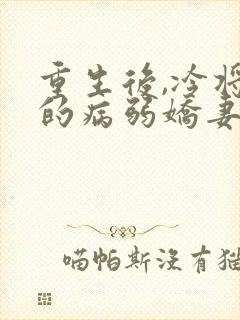 重生後,冷将
的病弱嬌妻
喵帕斯沒有猫